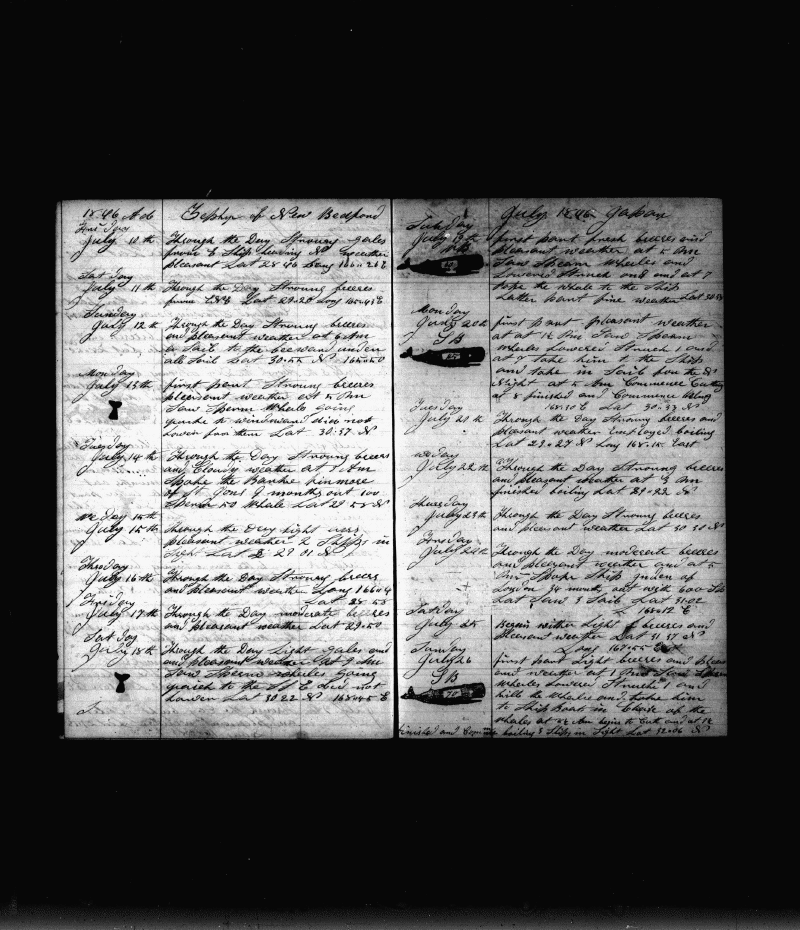 1846 At 06 Zephyr of New Bedford
Friday
July 10th Through the Day Stroung gales
from E Ship heaving N weather
pleasant Lat 28 46 Long 166=26 E
Sat day
July 11th Through the Day Stroung breeses
from ENE Lat 29=20 Long 165=43 E
Sunday
July 12th Through the Day Stroung breeses
and pleasant weather at 6 Am
a Sail to the leeward under
all Sail Lat 30=55 N 165=50
Monday
July 13th first part Stroung breeses
pleasent weather at 5 Am
Saw Sperm Whales going
quicke to windward did not
Lower for them Lat 30=57 N
Tuesday
July 14th Through the Day Stroung breeses
and Cloudy weather at 7 Am
Spoke the Barke
of St Jons 9 months out 100
Sperm 50 Whale Lat 29=55 N
We Day 15th
July 15th Through the Day light airs
pleasent weather 2 Ships in
Sight Lat 29 01 N
Thusday
July 16th Through the Day Stroung breeses
and pleasant weather Long 166=4
Friday Lat 28=53
July 17th Through the Day moderate breeses
and pleasant weather Lat 29=50
Sat day
July 18th Through the Day Light gales and
and pleasant weather at 7 Am
Saw Sperm whales going
quick to the St E did not
Lower Lat 30 22 N 165=45 E
July 1846 Japan
Sunday
July 19th first part fresh breeses and
pleasant weather at 5 Am
Saw Spearm Wherles and
Lowered Struck one and at 7
toke the whale to the Ship
Latter part fine weather Lat 30
Monday
July 20th first part pleasent weather
SB at at 1 1/2 Pm Saw Spearm
85 whales Lowered Struck 1 and
at 7 take him to the Ship
and take in Sail for the N
Night at 5 Am Commence Cutting
at 8 finished and Commence Boling
Tuesday 165=30 E Lat 30=33 N
July 21th Through the Day Stroung breeses and
pleasant weather Employed boiling
Lat 29=27 N Long 165=15 East
we day
July 22th Through the Day Stroung breeses
and pleasant weather at 3 Am
finished boiling Lat 29=22 N
Thursday
July 23th Through the Day Stroung breeses
and pleasent weather Lat 30 30 N
Friday
July 24th Through the Day moderate breeses
and pleasant weather and at 5
Am Spoke Ship of
London 34 months out with 600 Sp
Last Saw 3 Sail Lat 31=02
Satday L 165=12 E
July 25 Begin wither Light breeses and
pleasent weather Lat 31 37 N
Sunday Long 167=55 East
July 26 first part Light breeses and pleas
SB and weather at 1 Pm Saw Sperm
70 Wherles Lowered Strucke 1 and
kills the whale and take him
to Ship boats in Chase of the
whales at Am begins to Cut and at 12
finished and Commence boiling 3 Ships in Sight Lat 32=06 N